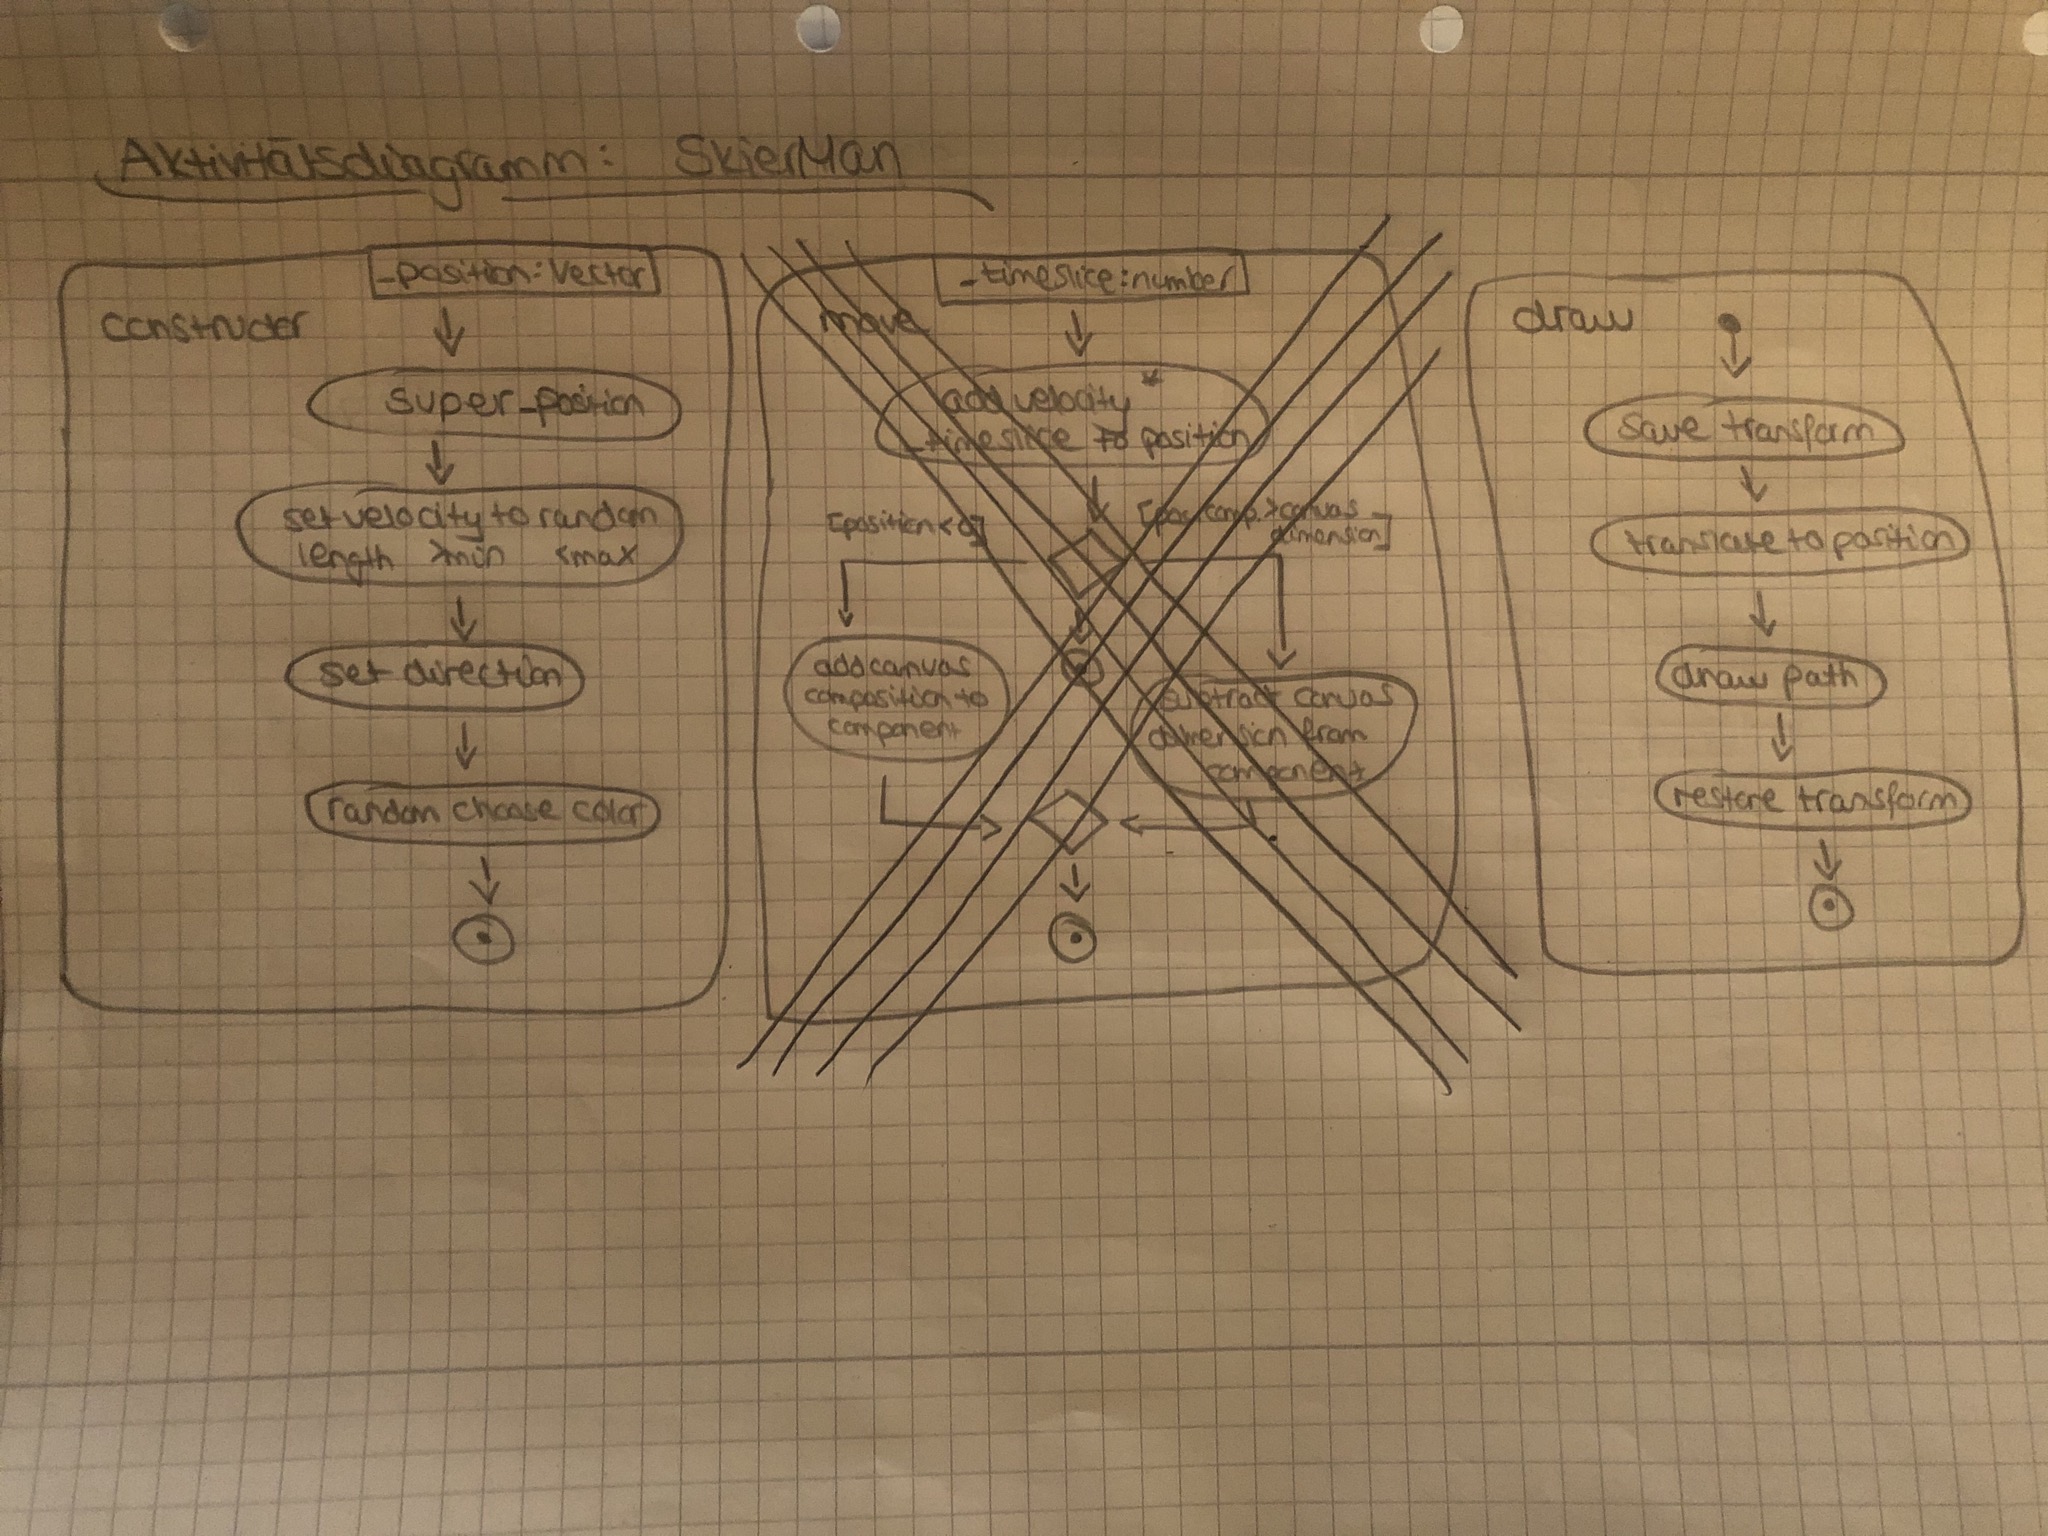 Aktivitätsdiagramm: SkierMan
_position: Vector
constructor
super_position
set velocity to random
length >min <max
set direction
random choose color
_timeslice: number
move
add velocity *
_timeslice to position
[position < 0]
[pos. comp. > canvas
dimension]
add canvas
composition to
component
subtract canvas
dimension from
component
draw
save transform
translate to position
draw path
restore transform